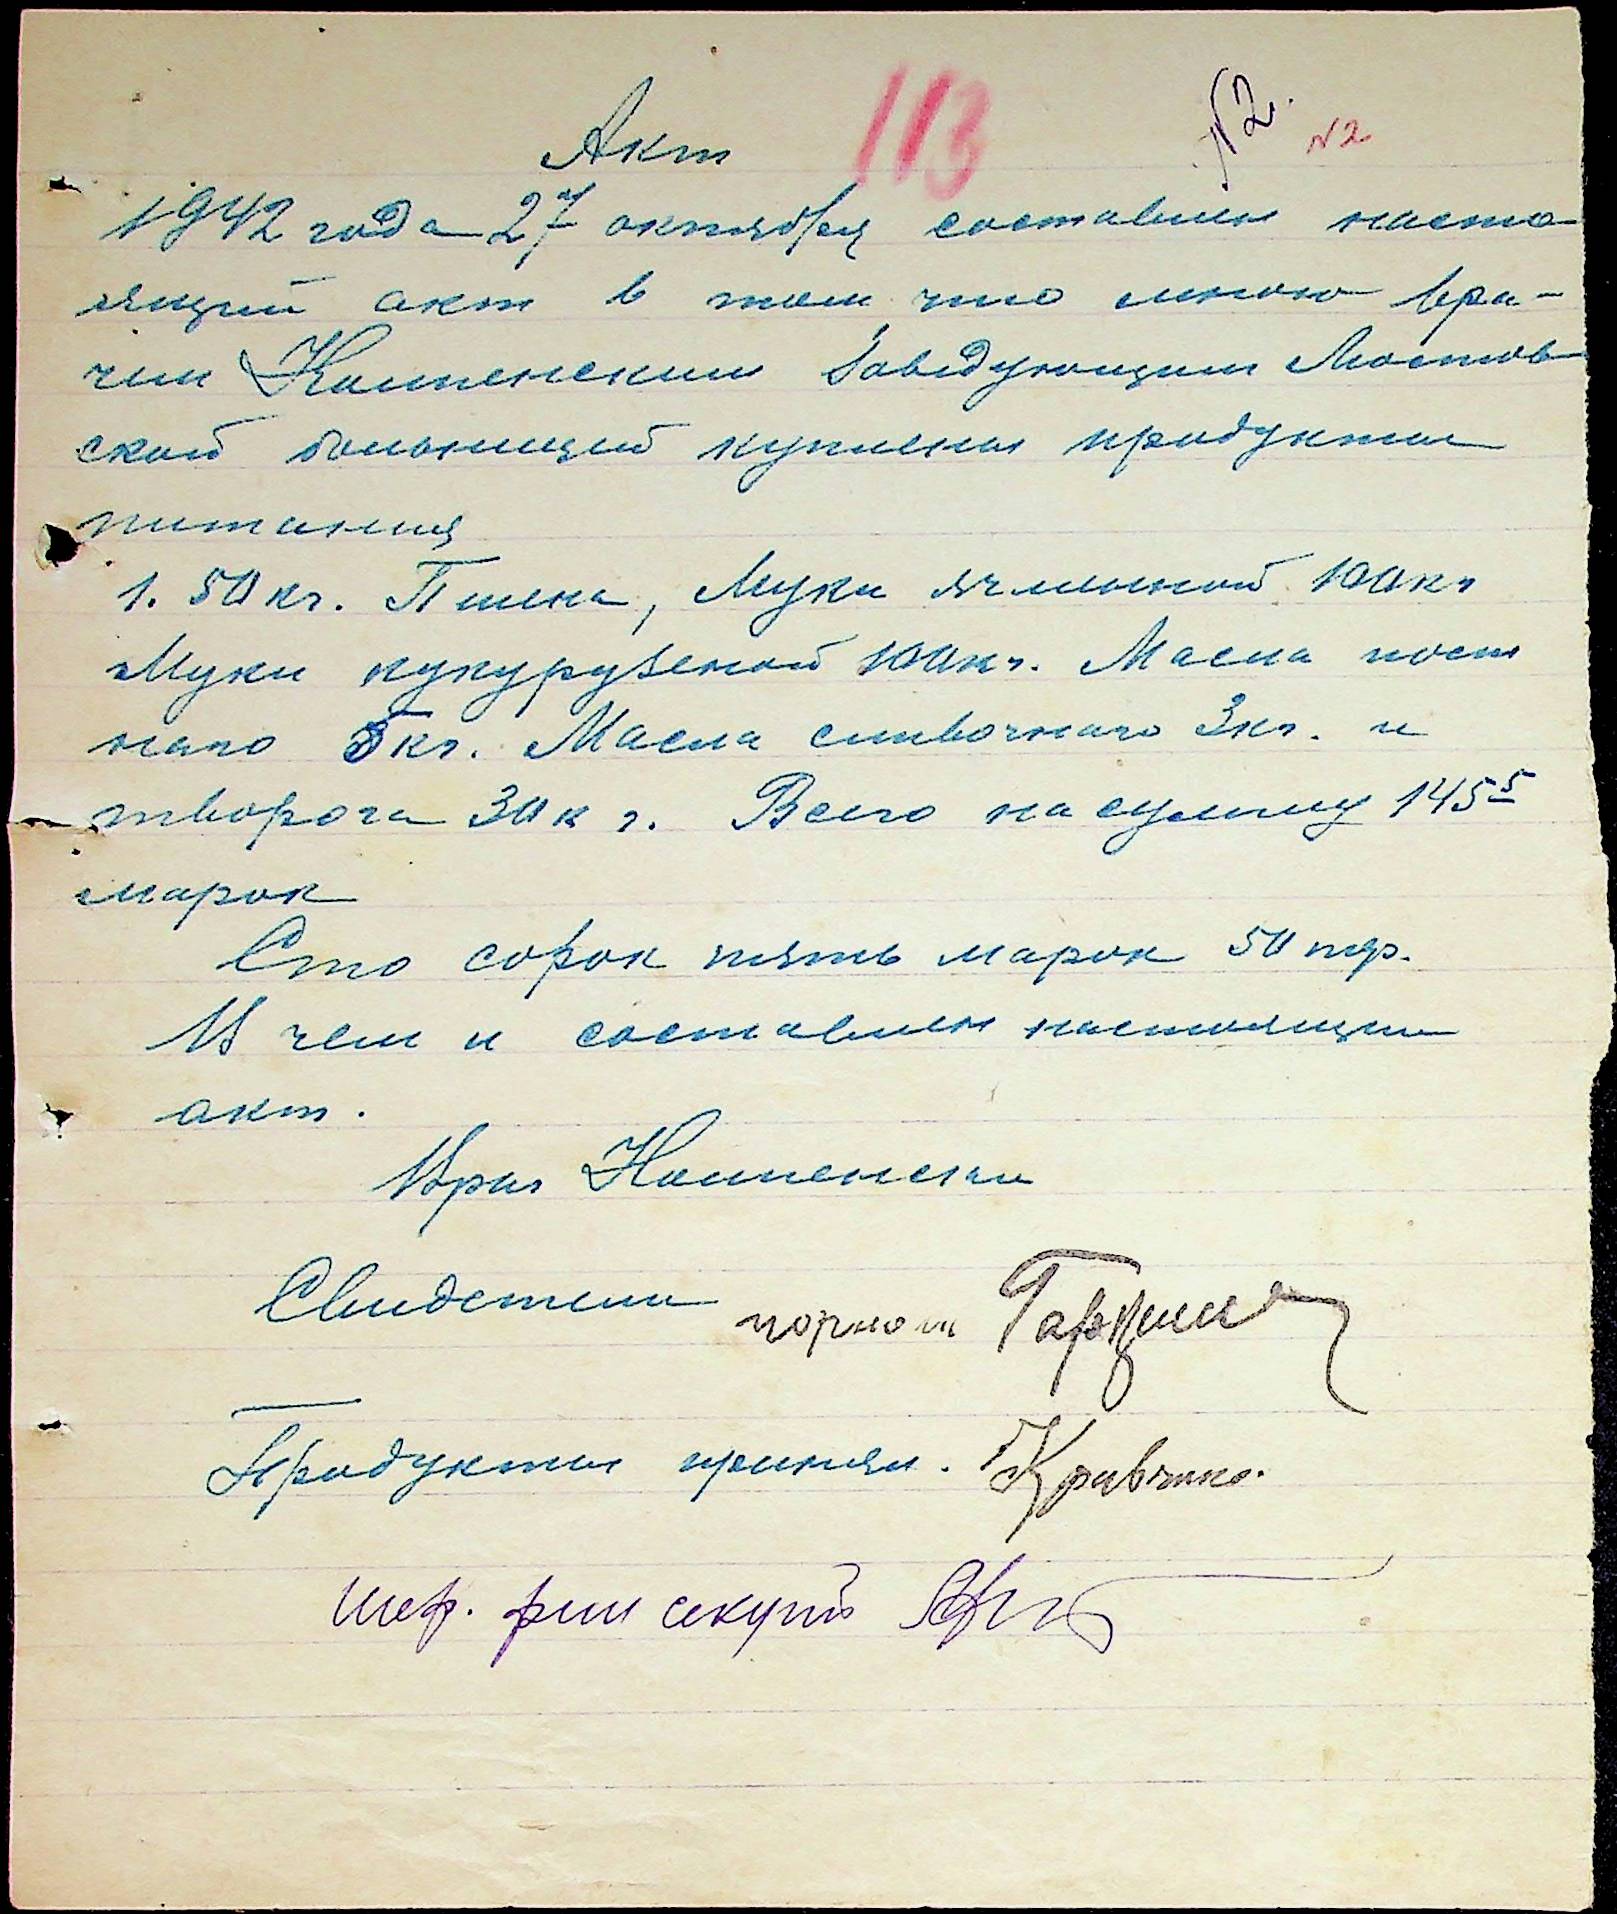 Акт
113
№2.
№2
1942 года 27 октября составлен насто-
ящий акт в том что мною вра-
чем Каменским Заведующим Мостов
ской больницей куплены продукты
питания
1. 50 кг. Пшена, Муки ячменной 100 кг
Муки кукурузной 100 кг. Масла пост
наго 5 кг. Масла сливочнаго 3 кг. и
творога 30 кг. Всего на сумму 145 5
марок
Сто сорок пять марок 50 пф.
В чем и составлен настоящии
акт.
Врач Каменски
Свидетели
Продукты принял. Кравченко.